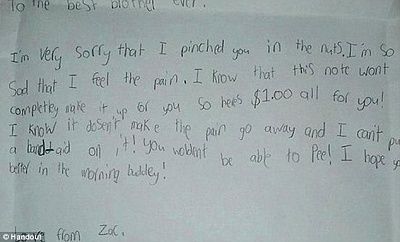 To the best brother ever.
I'm very sorry that I pinched you in the nuts. I'm so
sad that I feel the pain. I know that this note wont
completley make it up for you so here's $1.00 all for you!
I know it dosen't make the pain go away and I can't pu
a band-aid on it! you woldn't be able to Pee! I hope yo
better in the morning buddey!
from Zac.
© Handout